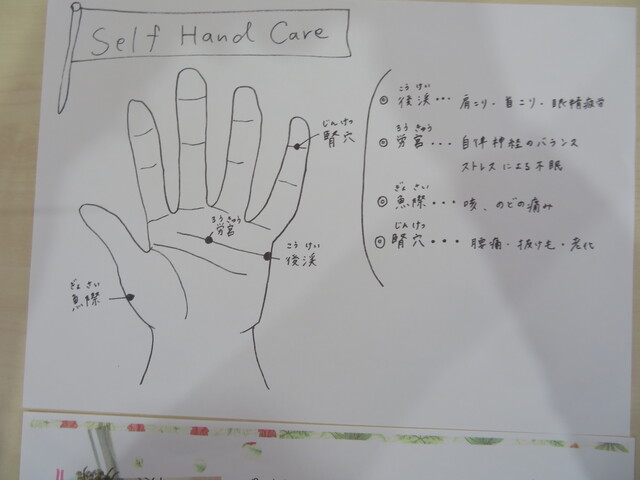 Self Hand Care
じんけつ
腎穴
ろうきゅう
労宮
こうけい
後渓
ぎょさい
魚際
こうけい
◎後渓・・・肩こり・首こり・眼精疲労
ろうきゅう
◎労宮・・・自律神経のバランス
ストレスによる不眠
ぎょさい
◎魚際・・・咳、のどの痛み
じんけつ
◎腎穴・・・腰痛・抜け毛・老化